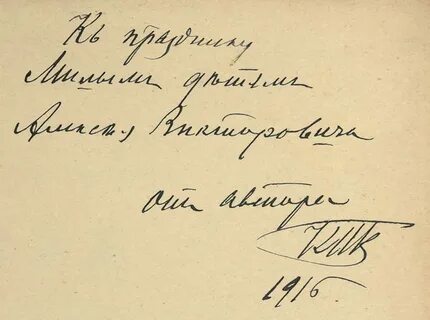 Къ празднику
Милымъ дѣтямъ
Алексѣя Викторовича
отъ автора
1916